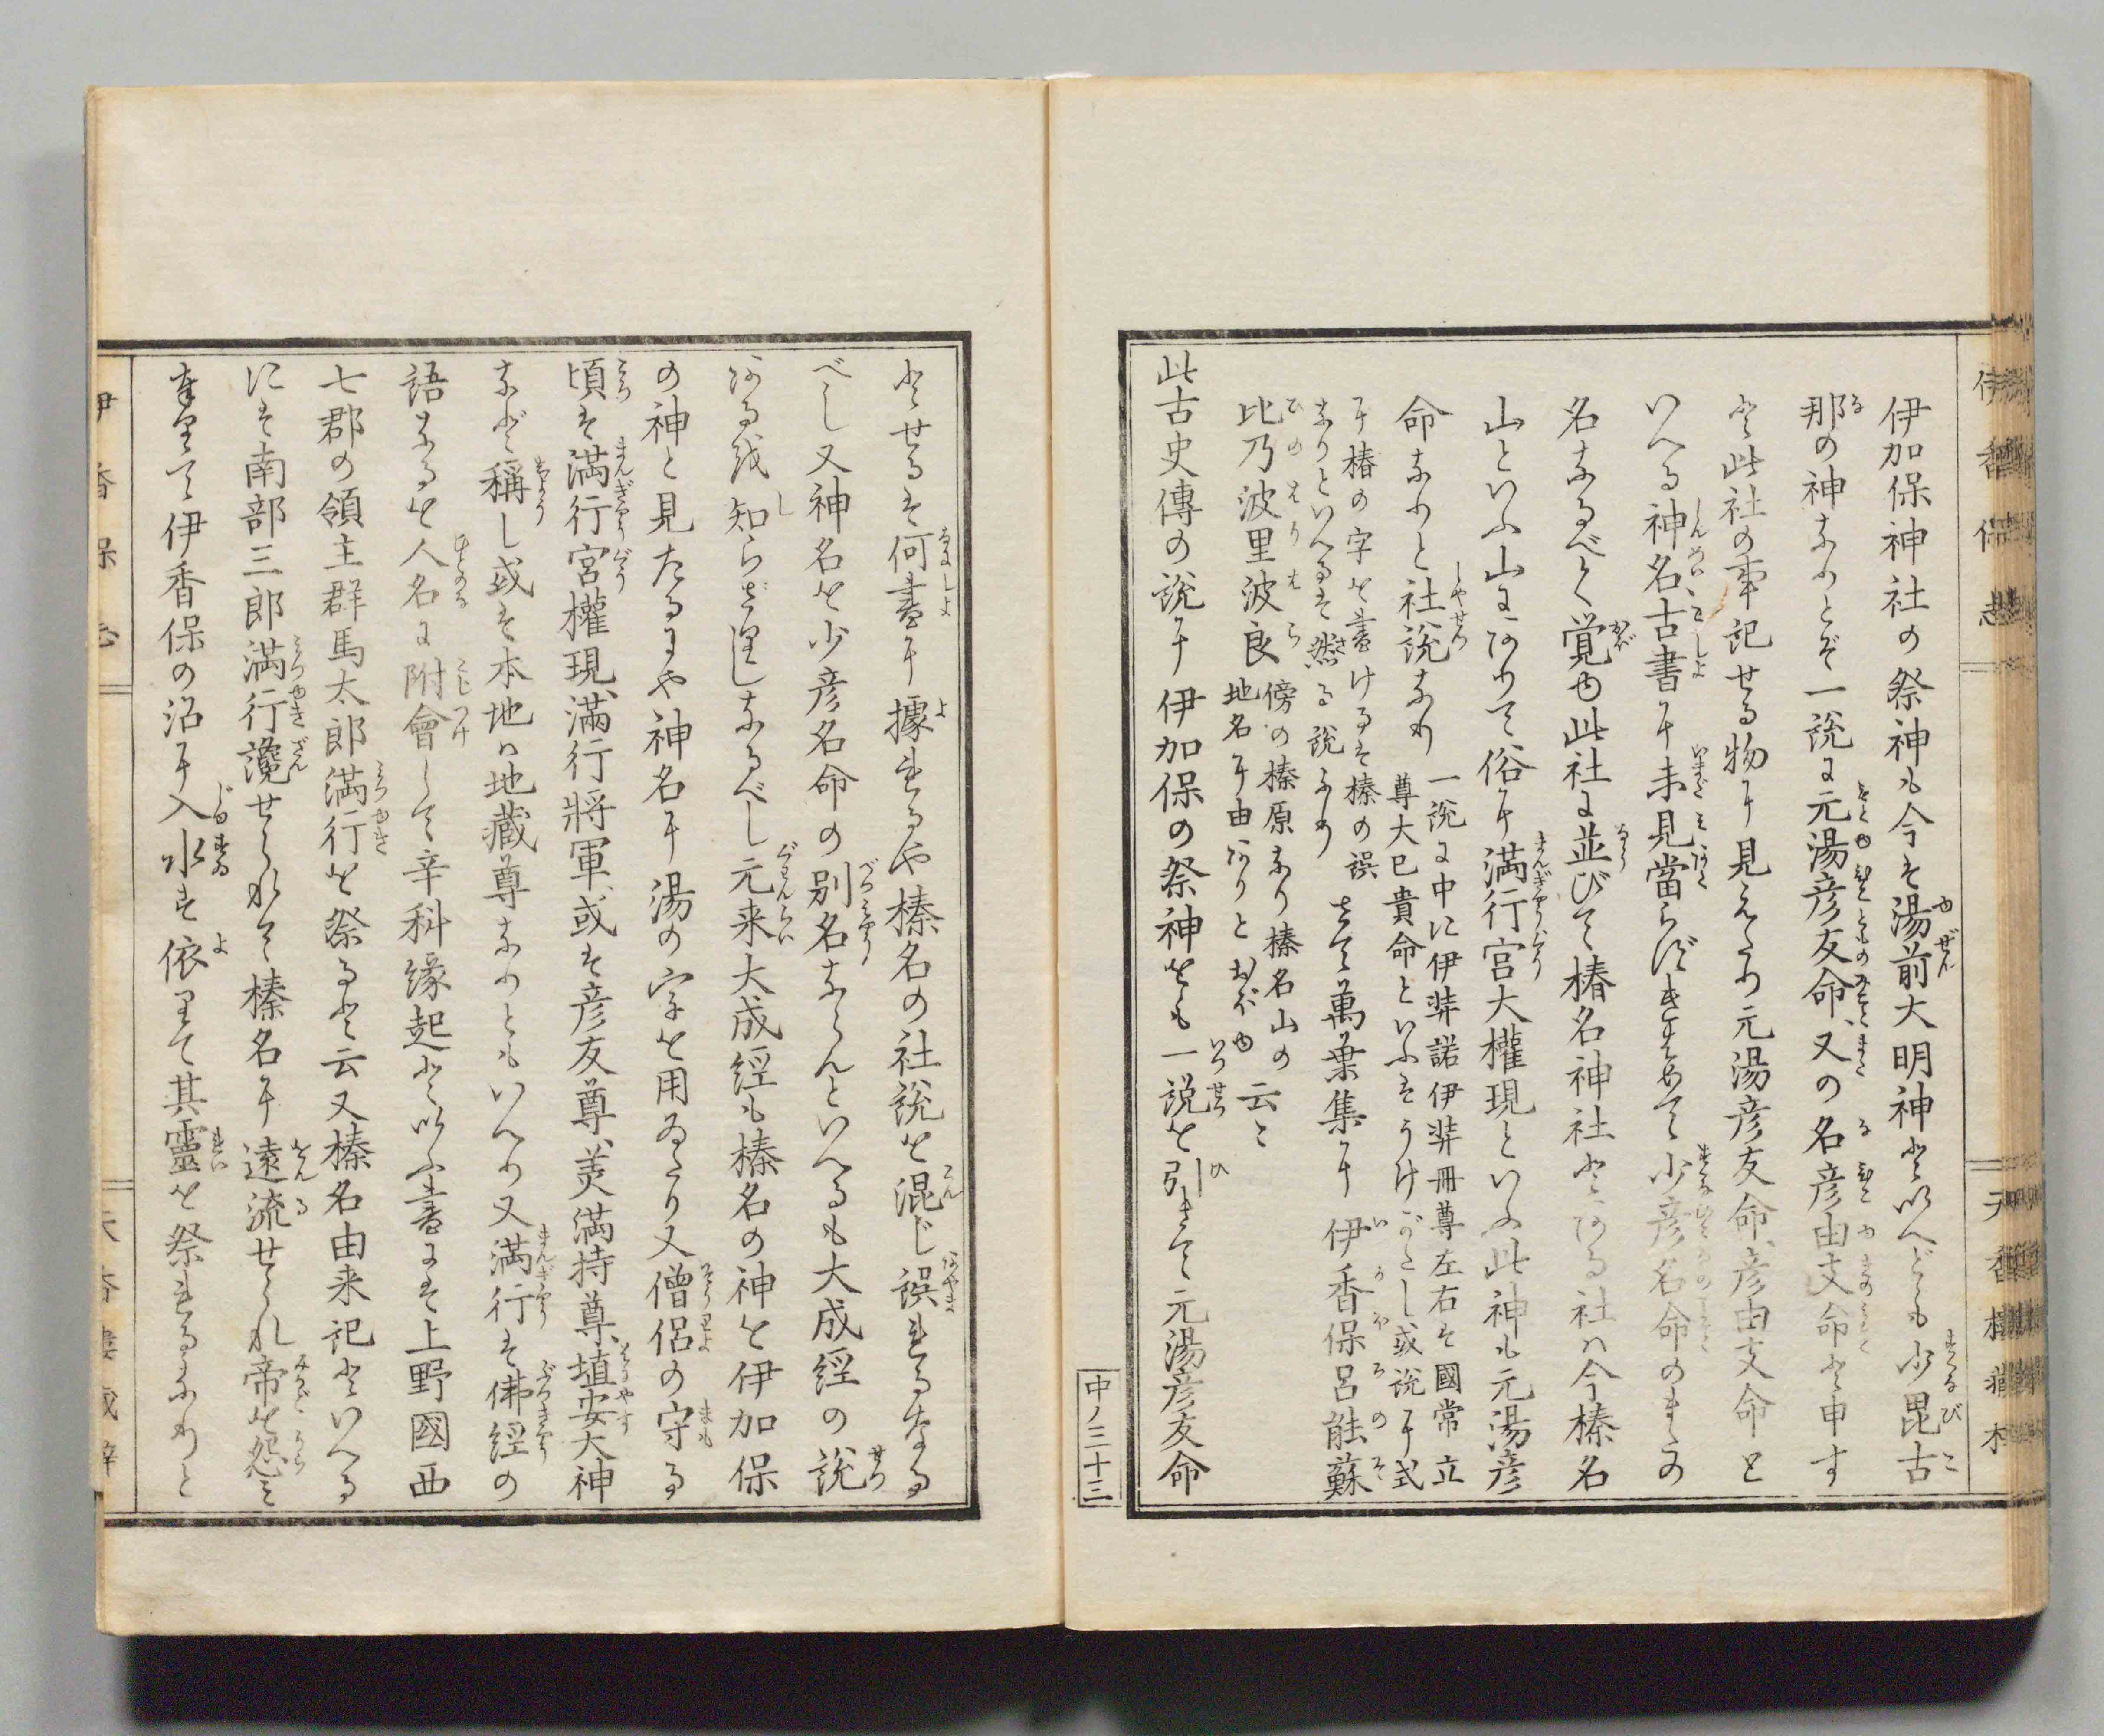 伊加保神社の祭神も今は湯前大明神といへども少毘古
那の神なりとぞ一説に元湯彦友命、又の名彦由支命と申す
と此社の事記せる物に見えたり元湯彦友命、彦由支命と
いへる神名、古書に未見當らず
少彦名命のまたの
名なるべく覚ゆ此社に並びて椿名神社とある社は今榛名
山といふ山にありて俗に満行宮大權現といふ此神も元湯彦
命なりと社説なり
一説に中に伊弉諾伊弉冊尊左右は國常立
尊大巳貴命といふはうけがたし或説に式
に椿の字を書けるは榛の誤
なりといへるは然る説なり
さて萬葉集に伊香保呂能蘇
比乃波里波良
傍の榛原なり榛名山の
地名に由ありとおぼゆ
云々
此古史傳の説に伊加保の祭神をも一説を引きて元湯彦友命
中ノ三十三
とせるは何書に據れるや榛名の社説を混じ誤れるなる
べし又神名を少彦名命の別名ならんといへるも大成経の説
ある故知らざ
なるべし元来大成經も榛名の神を伊加保
の神と見たるにや神名に湯の字を用ゐたり又僧侶の守る
頃は満行宮權現、満行將軍、或は彦友尊、美満持尊、埴安大神
など稱し或は本地は地藏尊なりともいへり又満行は佛経の
語なるを人名に附會して辛科縁起といふ書には上野國西
七郡の領主群馬太郎満行を祭ると云又榛名由来記といへる
には南部三郎満行讒せられて榛名に遠流せられ帝を怨み
奉りて伊香保の沼に入水す依りて其靈を祭れるなりと